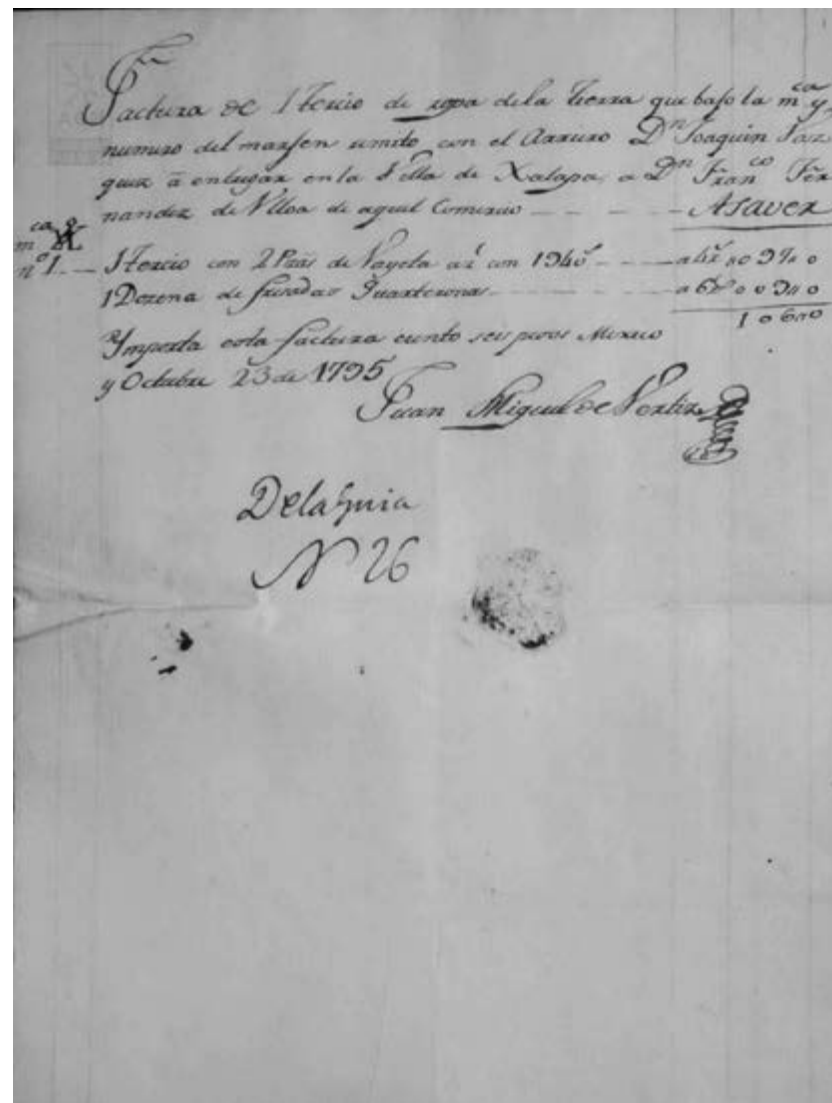 Factura de 1 Tercio de ropa de la tierra que bajo la m.ca y
numero del marjen remito con el Arriero Dn Joaquin Vaz
quez â entregar en la Villa de Xalapa, a Dn Franco Fer
nandez de Ulloa de aquel Comercio - - - - ASaver
mca
no 1. - 1 Tercio con 2 Pzas de Vayeta az.l con 194
1 Dozena de frisadas Quarteronas
1060
Ymporta esta factura ciento seis pesos Mexico
y Octubre 23 de 1795
Juan Miguel de Vertiz
De la guia
N 26